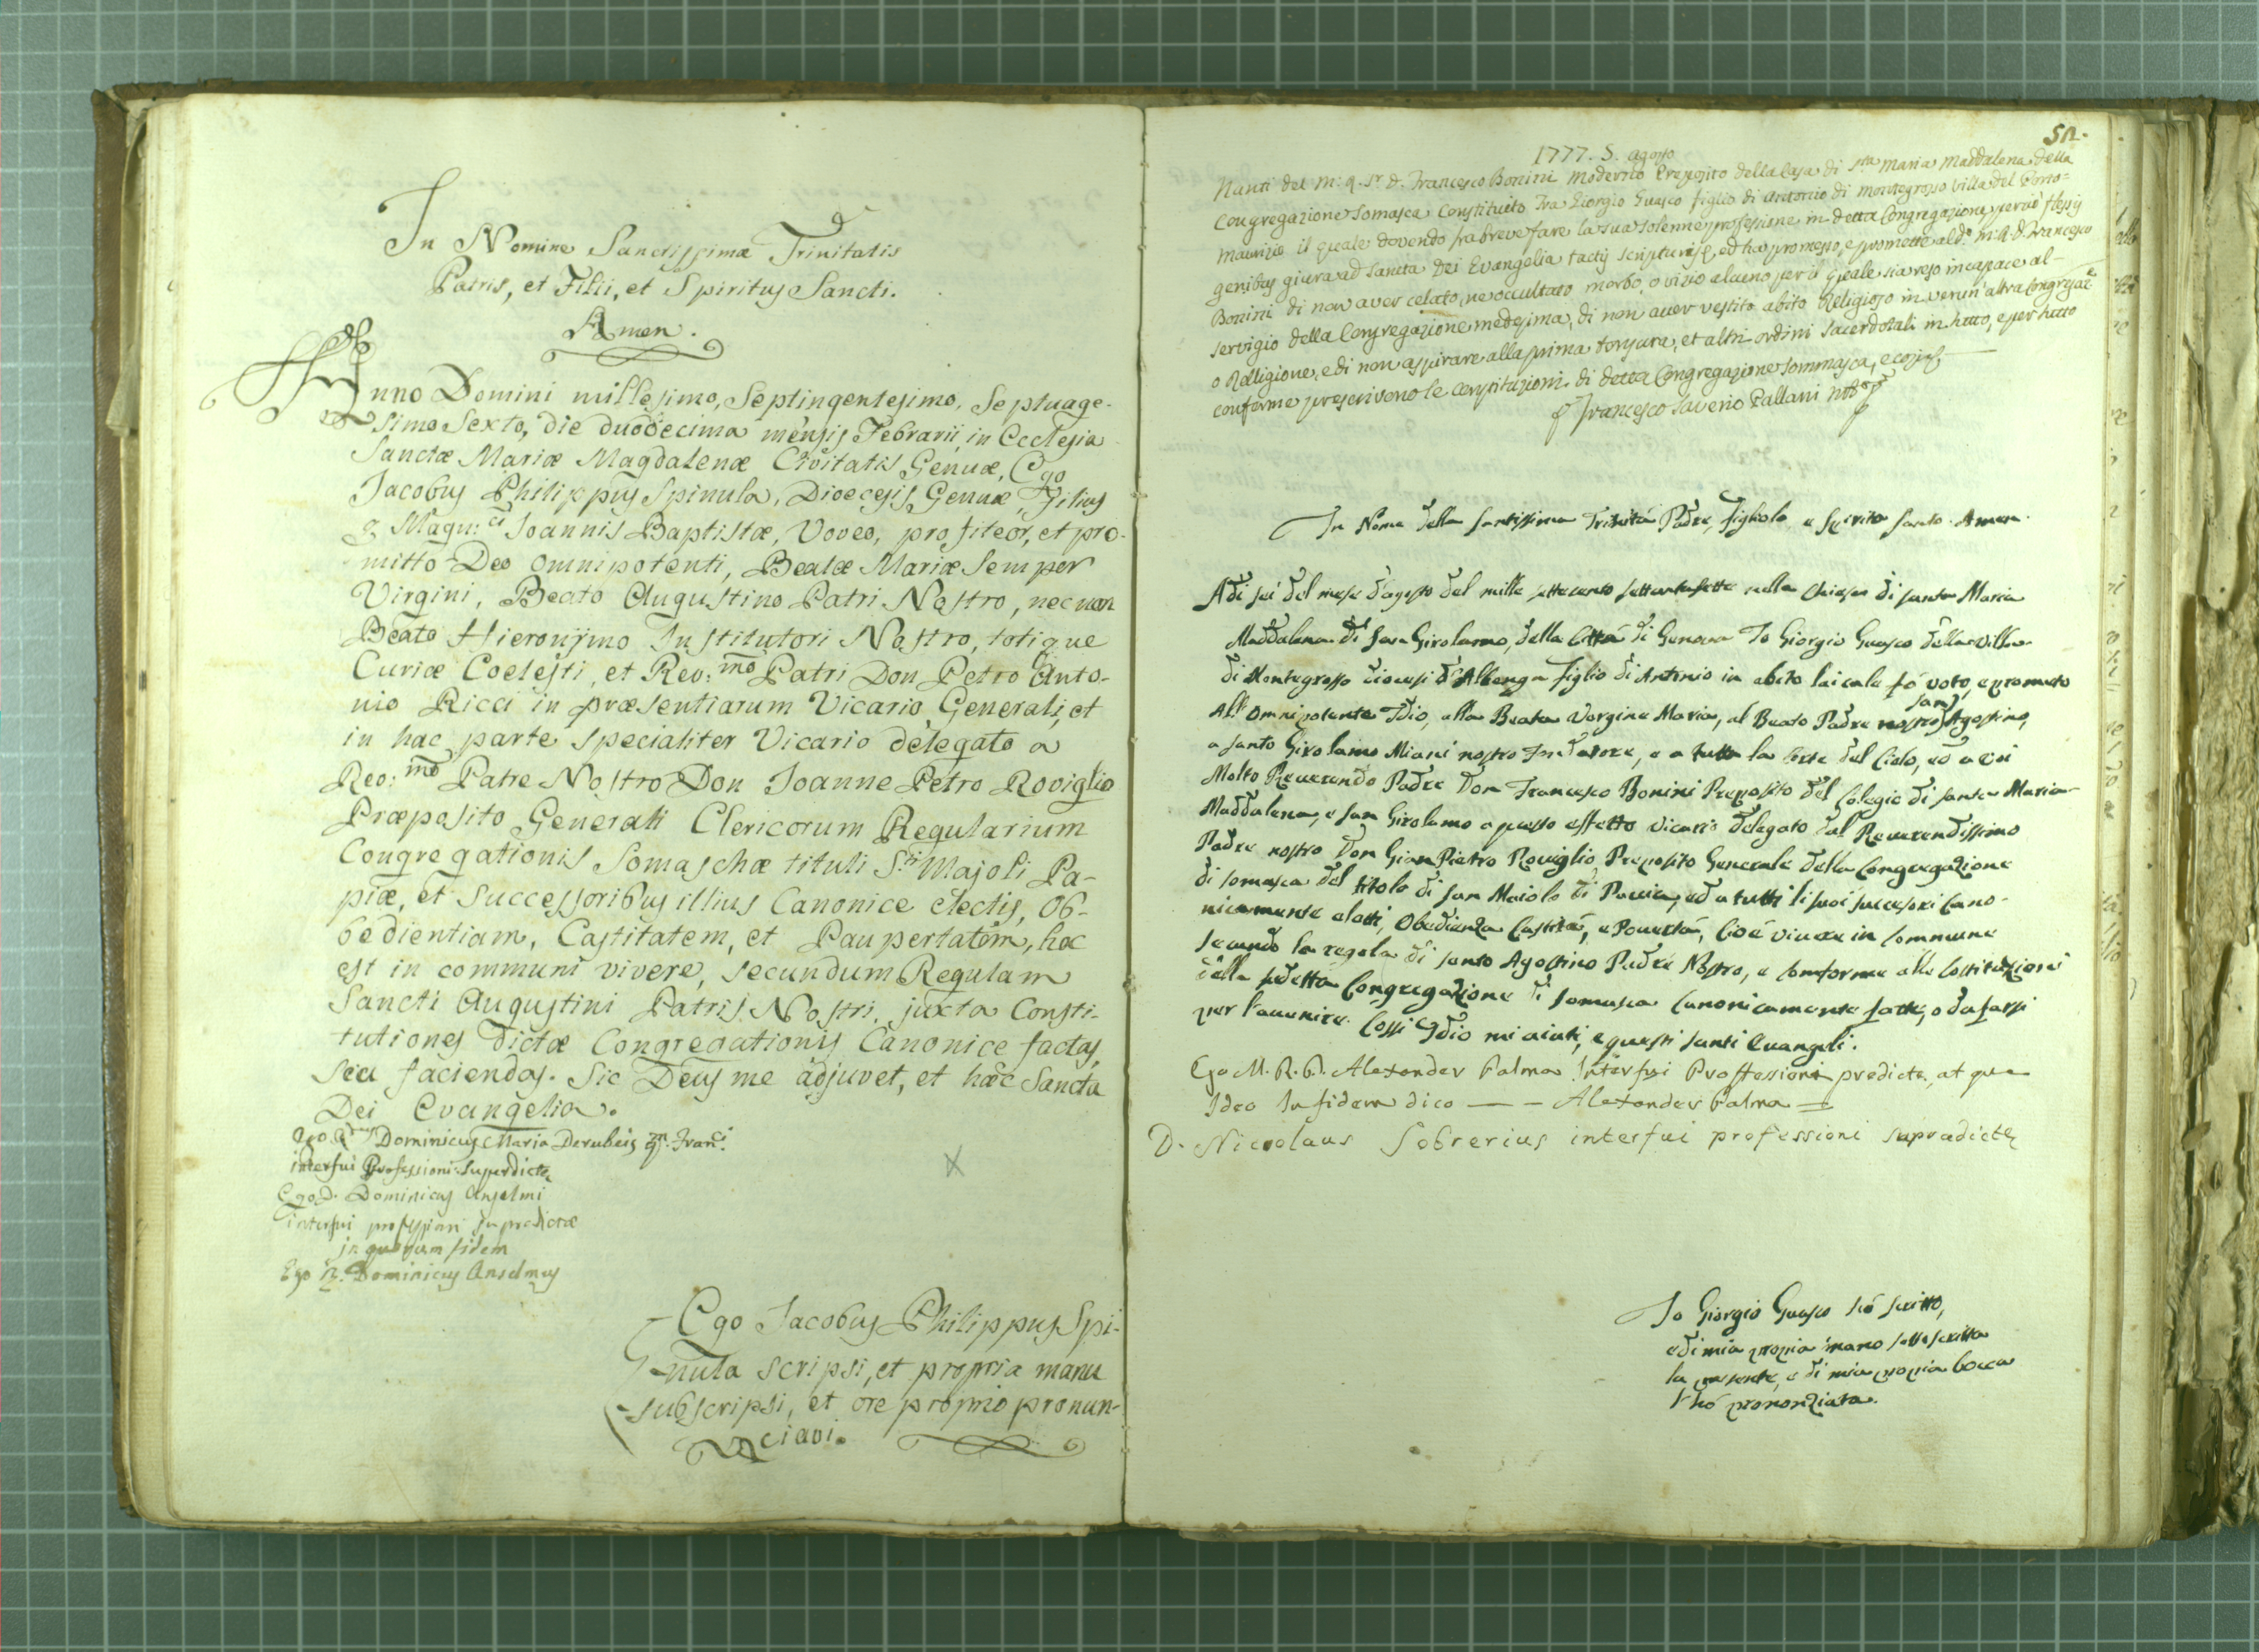 In Nomine Sanctissimæ Trinitatis
Patris, et Filii, et Spiritus Sancti.
Amen.
Anno Domini millesimo, Septingentesimo, Septuage-
simo Sexto, die duodecima mensis Febrarii, in Ecclesia
Sanctæ Mariæ Magdalenæ Civitatis Genuæ, Ego
Jacobus Philippus Spinula, Dioecesis Genuæ, Filius
q. Magn:ci Joannis Baptistæ, Voveo, profiteor, et pro-
mitto Deo omnipotenti, Beatæ Mariæ Semper
Virgini, Beato Augustino Patri Nostro, nec non
Beato Hieronijmo Institutori Nostro, totique
Curiæ Coelesti, et Rev:mo Patri Don Petro Anto-
nio Ricci in præsentiarum Vicario Generali, et
in hac parte specialiter Vicario delegato a
Reo:mo Patre Nostro Don Joanne Petro Roviglio
Præposito Generali Clericorum Regularium
Congregationis Somaschæ tituli S.ti Majoli Pa-
piæ, et Successoribus illius Canonice electis, Ob-
bedientiam, Castitatem, et Paupertatem, hoc
est in communi vivere, secundum Regulam
Sancti Augustini Patris Nostri, juxta Consti-
tutiones dictæ Congregationis Canonice factas,
seu faciendas. Sic Deus me adjuvet, et hæc Sancta
Dei Evangelia.
Dominicus Maria Derubeis q.m Fran.ci
interfui Professioni Superdictæ
Ego D. Dominicus Anselmi
interfui professioni supradictæ
in quorum fidem
Ego Dominicus Anselmus
Ego Jacobus Philippus Spi-
nula scripsi, et propria manu
subscripsi, et ore proprio pronun-
ciavi.
1777. 5. agosto
Nanti del m: R. Sr. D. Francesco Bonini moderno Preposito della Casa di Sta Maria Maddalena della
Congregazione Somasca Constituito Fra Giorgio Guasco figlio di Antonio di Montegrosso villa del Porto=
Maurizio il quale dovendo fra breve fare la sua solenne professione in detta Congregazione perciò flessis
genibus giura ad Sancta Dei Evangelia tactis scripturis, ed ha promesso, e promette al d.o m: R. D. Francesco
Bonini di non aver celato, ne occultato morbo, o vizio alcuno per il quale sia reso incapace al-
servigio della Congregazione medesima, di non aver vestito abito Religioso in verun' altra Congregaz.e
o Relligione, e di non aspirare alla prima tonsura, et altri ordini sacerdotali in tutto, e per tutto
conforme prescrivono le constituzioni di detta Congregazione Sommasca, e
Francesco Saverio Pallani
In Nome della santissima Trinità Padre, Figliolo, e Spirito Santo. Amen.
Adi sei del mese d'agosto del mille settecento settantasette nella Chiesa di santa Maria
Maddalena di San Girolamo, della Città di Genova Io Giorgio Guasco della villa
di Montegrosso diocesi d'Albenga figlio di Antonio in abito laicale fò voto, e prometo
All omnipotente Idio, alla Beata Vergine Maria, al Beato Padre nostro Sant Agostino,
a santo Girolamo Miani nostro Fundatore, e a tutta la Corte del Cielo, ed a voi
Molto Reverendo Padre Don Francesco Bonini Preposito del Colegio di santa Maria
Maddalena, e san Girolamo a questo effetto vicario delegato dal Reverendissimo
Padre nostro Don Gian Pietro Roviglio Preposito Generale della Congregazione
di somasca del titolo di san Maiolo di Pavia, ed a tutti li suoi successori Cano-
nicamente eletti, Obedienza Castità, e Povertà, Cioè vivere in Commune
secundo la regola di santo Agostino Padre Nostro, e Comforme alle Costituzioni
della sudetta Congregazione di somasca Canonicamente fatte, o da farsi
per l'avenire. Cossi Idio mi aiuti, e questi santi Evangeli.
Ego M. R. D. Alexander Palma Interfui Proffessioni predicte, at que
Ideo In fidem dico — — Alexander Palma
D. Nicolaus Sobrerius interfui professioni supradicte
Io Giorgio Guasco hò scritto,
e di mia propia mano sottoscritta
la presente, e di mia propia bocca
l'hó prononziata.